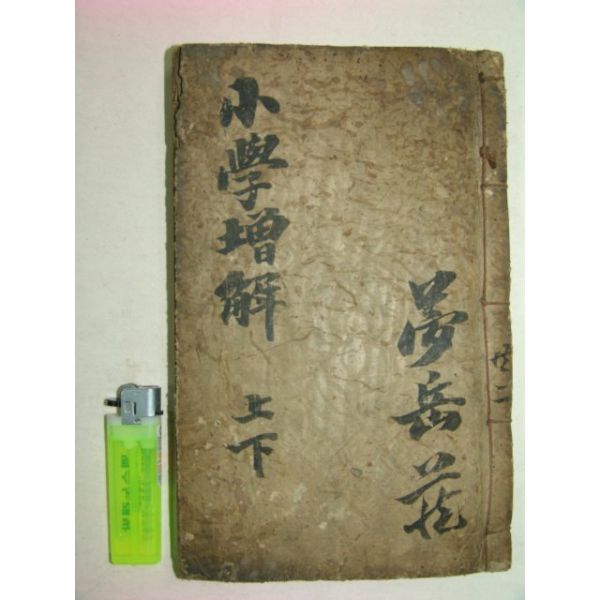 小學增解
上下
夢岳藏
共二